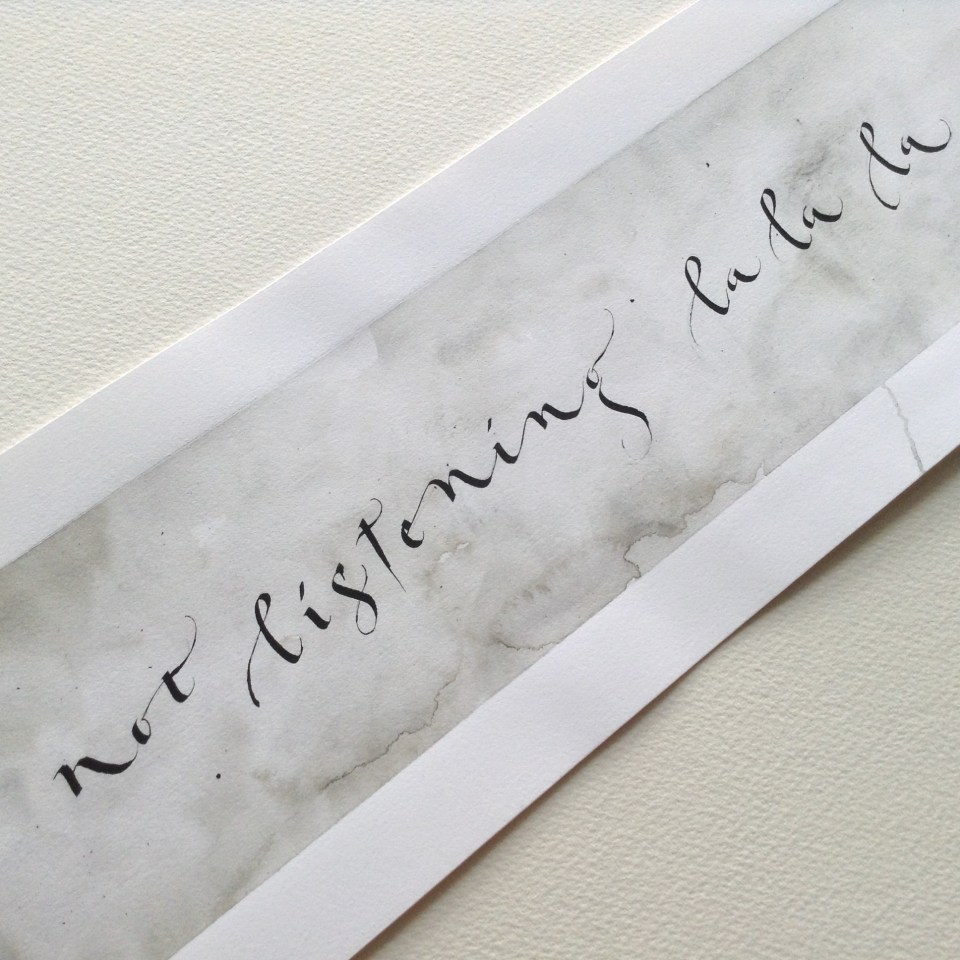 not listening la la la